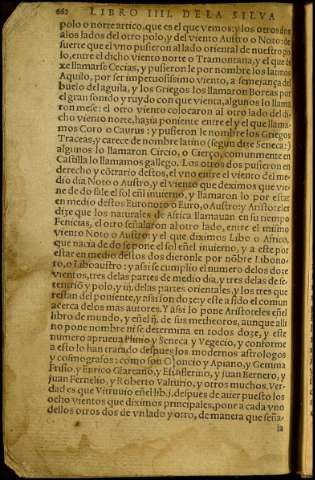 662 LIBRO IIII. DE LA SILVA
polo o norte artico, que es el que vemos: y los otros dos
a los lados del otro polo, y del viento Austro o Noto: de
suerte que el vno pusieron al lado oriental de nuestro po
lo, entre el dicho viento norte o Tramontana, y el que di
xe llamarse Cecias, y pusieron le por nombre los latinos
Aquilo, por ser impetuosissimo viento, a semejança del
buelo del aguila, y los Griegos los llamaron Boreas por
el gran sonido y ruydo con que vienta, algunos lo llama
ron mese: el otro viento colocaron al otro lado del di-
cho viento norte, hazia poniente entre el y el que llama-
mos Coro o Caurus: y pusieron le nombre los Griegos
Traceas, y carece de nombre latino (segun dize Seneca:)
algunos lo llamaron Circio, o Cierço, comunmente en
Castilla lo llamamos gallego. Los otros dos pusieron en
derecho y cõtrario destos, el vno entre el viento del me-
dio dia Noto o Austro, y el viento que diximos que vie-
ne de do sale el sol eñl inuierno, y llamaron lo por estar
en medio destos Euronoto o Euro, o Austro: y Aristoteles
dize que los naturales de Africa llamauan en su tiempo
Fenicias, el otro señalaron al otro lado, entre el mismo
viento Noto o Austro: y el que diximos Libo o Africo,
que nacia de do se pone el sol en el inuierno, y a este por
estar en medio destos dos dieronle por nõbre Libono-
to, o Liboaustro: y assi se cumplio el numero de los doze
vientos, tres de las partes de medio dia, y tres de las de se-
tentriõ y polo, y iij. de las partes orientales, y los tres que
restan del poniente, y assi son doze: y este a sido el comun
acerca de los mas autores. Y assi lo pone Aristoteles eñel
libro de mundo, y eñel ij. de sus metheoros, aunque alli
no pone nombre ni se determina en todos doze, y este
numero aprueua Plinio y Seneca y Vegecio, y conforme
a esto lo han tratado despues los modernos astrologos
y cosmografos: como son y Apiano, y Gemma
Frisio, y Enrico Glareano, y Estoflerino, y Juan Bernero, y
Juan Fernelio, y Roberto Valturio, y otros muchos. Ver-
dad es que Vitruuio eñel lib.j. despues de auer puesto los
ocho vientos que diximos principales, pone a cada vno
dellos otros dos de vn lado y otro, de manera que seña-
la